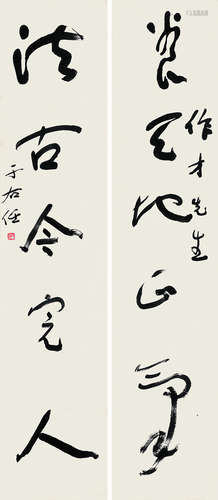 养天地正气
作才先生
法古今完人
于右任